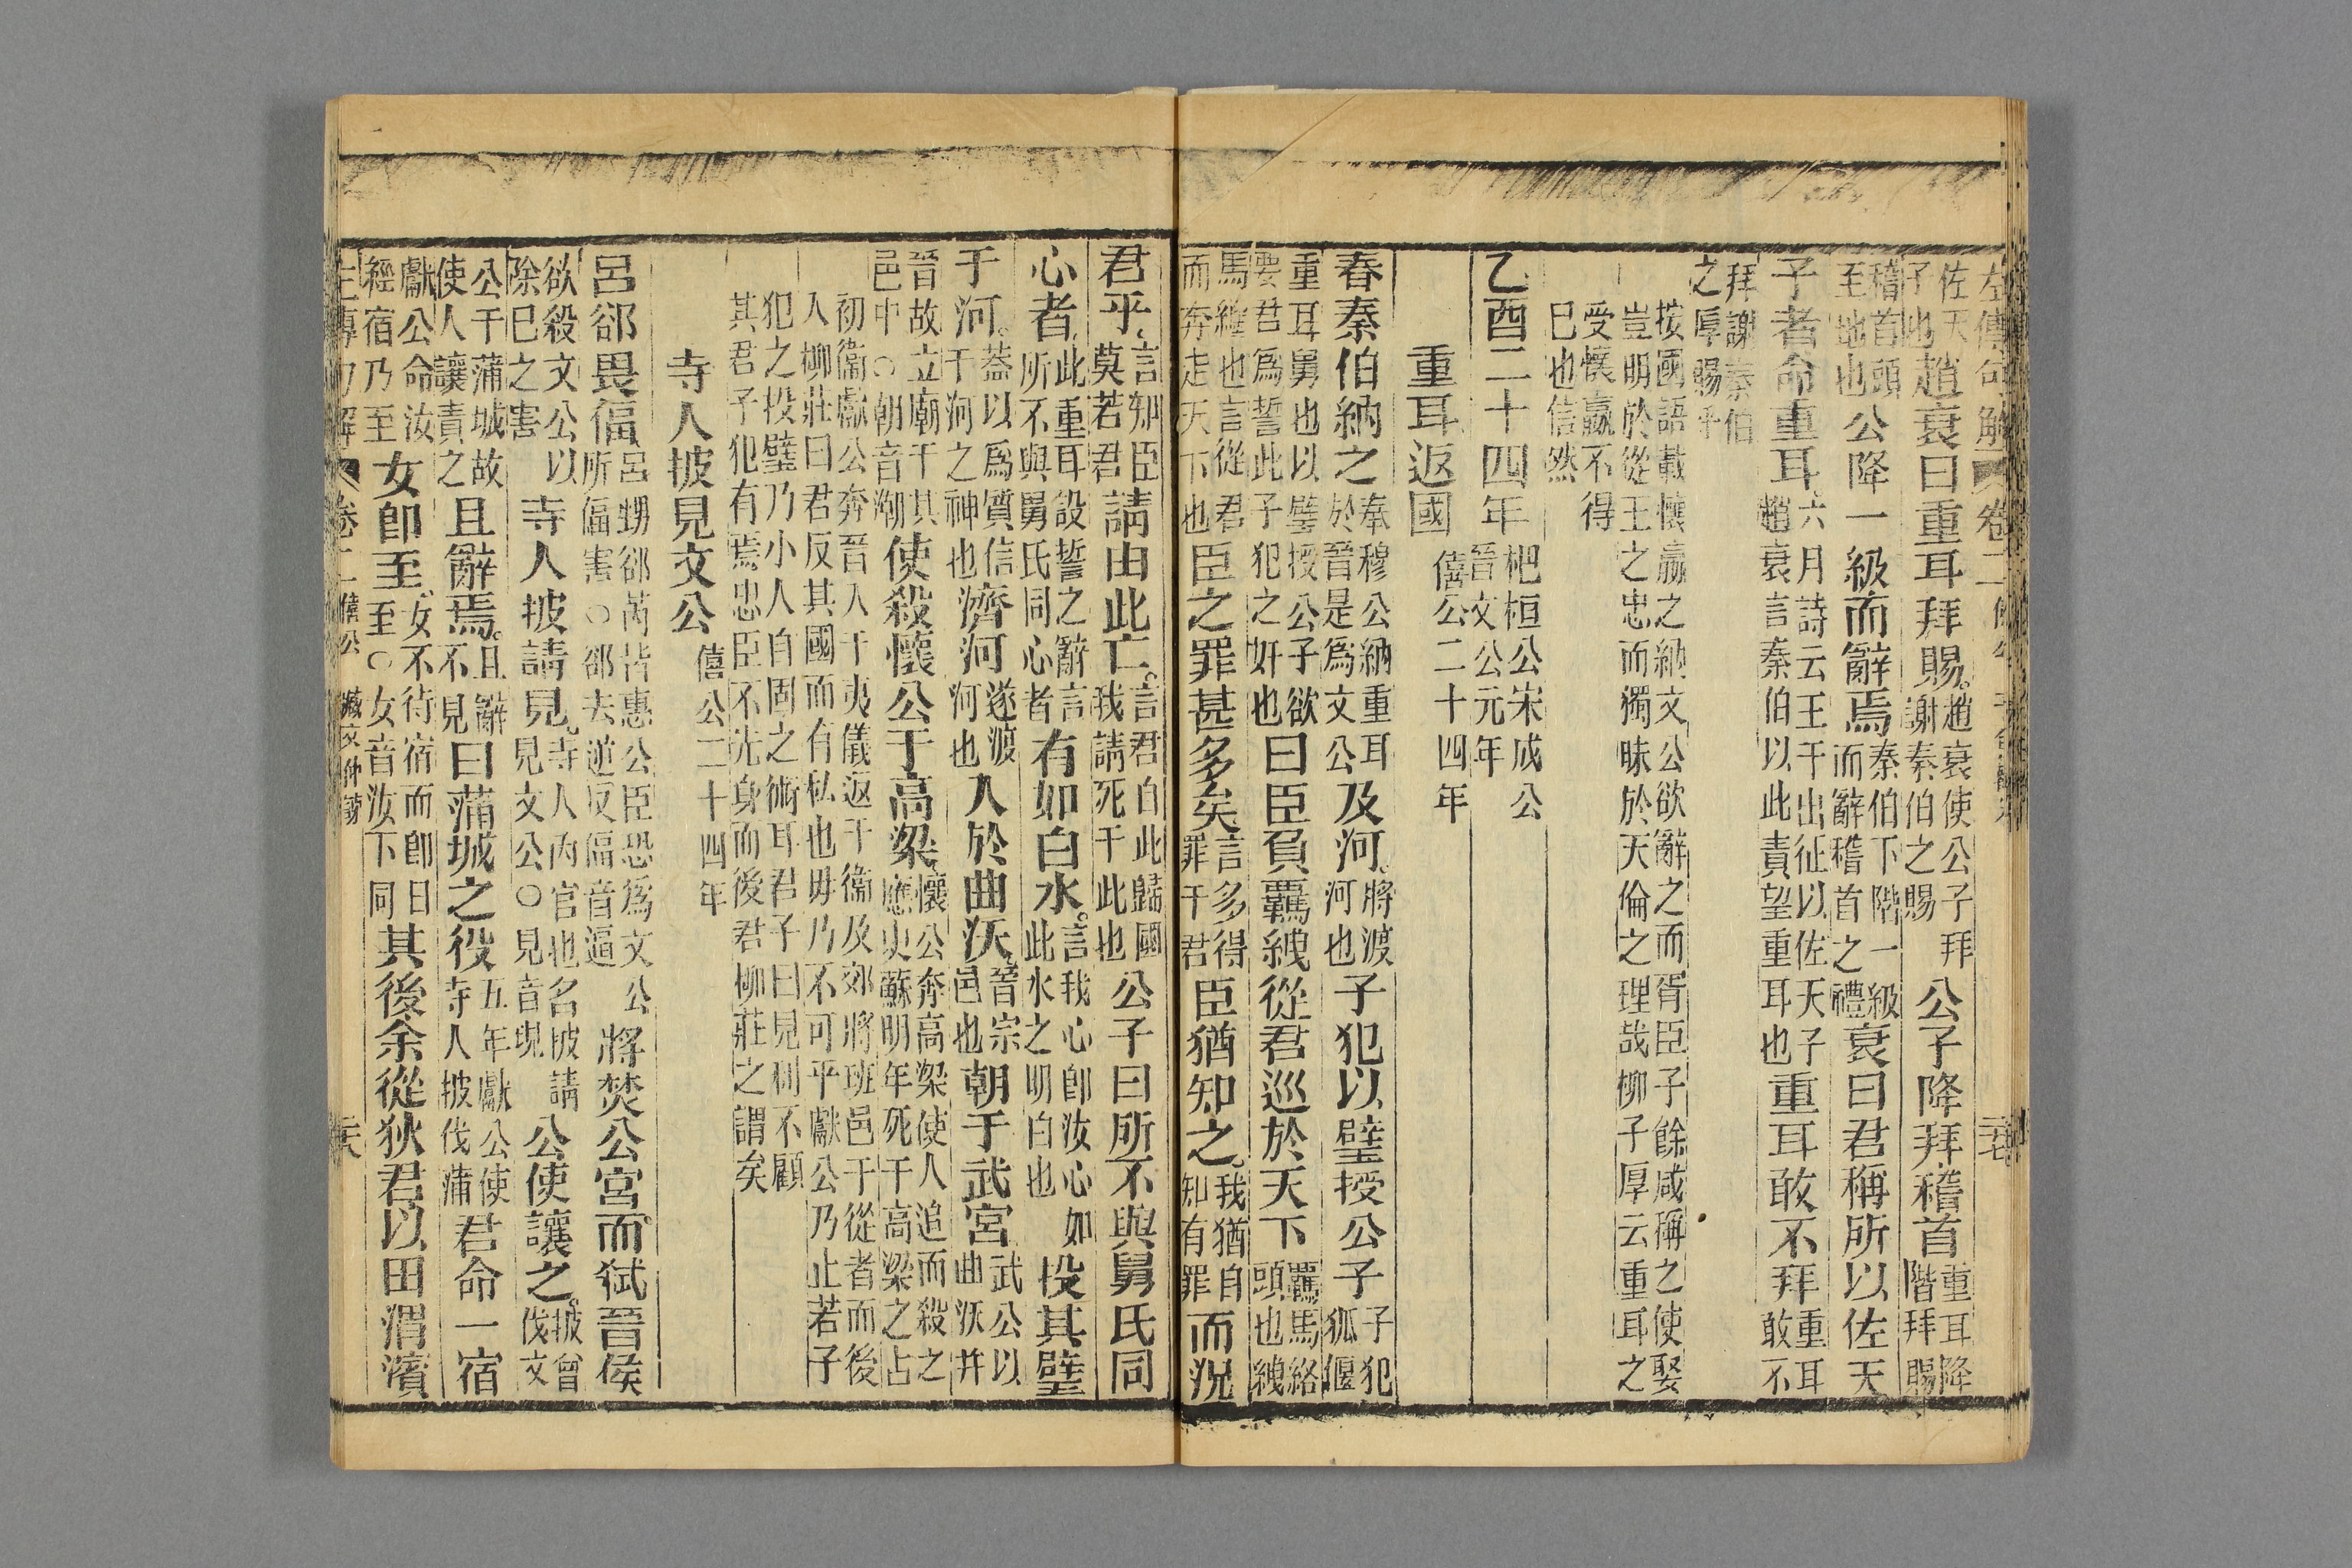 左傳句解 卷二
佐天子也趙衰曰重耳拜賜趙衰使公子拜謝秦伯之賜公子降拜稽首重耳降階拜賜
稽首頭至地也公降一級而辭焉秦伯下階一級而辭稽首之禮衰曰君稱所以佐天
子者命重耳六月詩云王于出征以佐天子趙衰言秦伯以此責望重耳也重耳敢不拜重耳敢不
拜謝秦伯之厚賜乎
按國語載懷嬴之納文公欲辭之而胥臣子餘咸稱之使娶
豈明於從王之忠而獨昧於天倫之理哉柳子厚云重耳之
受懷嬴不得
已也信然
乙酉二十四年杞桓公宋成公晉文公元年
重耳返國僖公二十四年
春秦伯納之奉穆公納重耳於晉是為文公及河將渡河也子犯以璧授公子子犯狐偃
重耳舅也以璧授公子欲要君為誓此子犯之奸也曰臣負羈紲從君巡於天下羈馬絡頭也紲
馬韁也言從君而奔走天下也臣之罪甚多矣言多得罪于君臣猶知之我猶自知有罪而況
君乎言知臣莫若君請由此亡言君自此歸國我請死于此也公子曰所不與舅氏同
心者此重耳設誓之辭言所不與舅氏同心者有如白水言我心即汝心如此水之明白也投其璧
于河蓋以為質信于河之神也濟河遂渡河也入於曲沃晉宗邑也朝于武宮武公以曲沃并
晉故立廟于其邑中○朝音潮使殺懷公于高梁懷公奔高梁使人追而殺之應史蘇明年死于高梁之占
初衛獻公奔晉入于夷儀返于衛及郊將班邑于從者而後
入柳莊曰君反其國而有私也毋乃不可乎獻公乃止若子
犯之投璧乃小人自固之術耳君子曰見利不顧
其君子犯有焉忠臣不先身而後君柳莊之謂矣
寺人披見文公僖公二十四年
呂郤畏偪呂甥郤芮皆惠公臣恐為文公所偪害○郤去逆反偪音逼將焚公宮而弒晉侯
欲殺文公以除己之害寺人披請見寺人內官也名披請見文公○見音現公使讓之披曾伐文
公于蒲城故使人讓責之且辭焉且辭不見曰蒲城之役五年獻公使寺人披伐蒲君命一宿
獻公命汝經宿乃至女即至女不待宿而即日至○女音汝下同其後余從狄君以田渭濱
左傳句解 卷二 僖公